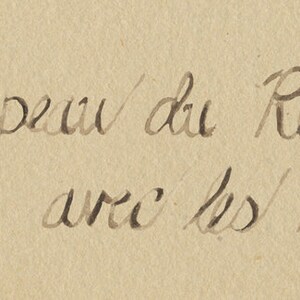 peau du R
avec les